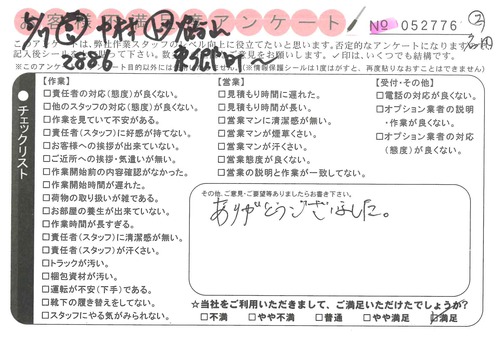 お客様 満足 アンケート
№ 052776
2886
このアンケートは、弊社作業スタッフのレベル向上に役立てたいと思います。否定的なアンケートになります
記入後シール
いくつでも結構です。
※このアンケート
(※情報保護シールは1度はがすと、再度貼りなおすことはできません)
チェックリスト
【作業】
□責任者の対応(態度)が良くない。
□他のスタッフの対応(態度)が良くない。
□作業を見ていて不安がある。
□責任者(スタッフ)に好感が持てない。
□お客様への挨拶が出来ていない。
□ご近所への挨拶・気遣いが無い。
□作業開始前の内容確認がなかった。
□作業開始時間が遅れた。
□荷物の取り扱いが雑である。
□お部屋の養生が出来ていない。
□作業時間が長すぎる。
□責任者(スタッフ)に清潔感が無い。
□責任者(スタッフ)が汗くさい。
□トラックが汚い。
□梱包資材が汚い。
□運転が不安(下手)である。
□靴下の履き替えをしてない。
□スタッフにやる気がみられない。
【営業】
□見積もり時間に遅れた。
□見積もり時間が長い。
□営業マンに清潔感が無い。
□営業マンが煙草くさい。
□営業マンが汗くさい。
□営業態度が良くない。
□営業の説明と作業が一致してない。
【受付・その他】
□電話の対応が良くない。
□オプション業者の説明
・作業が良くない。
□オプション業者の対応
(態度)が良くない。
その他、ご意見・ご要望等ありましたらお書き下さい。
ありがとうございました。
☆当社をご利用いただきまして、ご満足いただけたでしょうか?
□不満 □やや不満 □普通 □やや満足 □満足